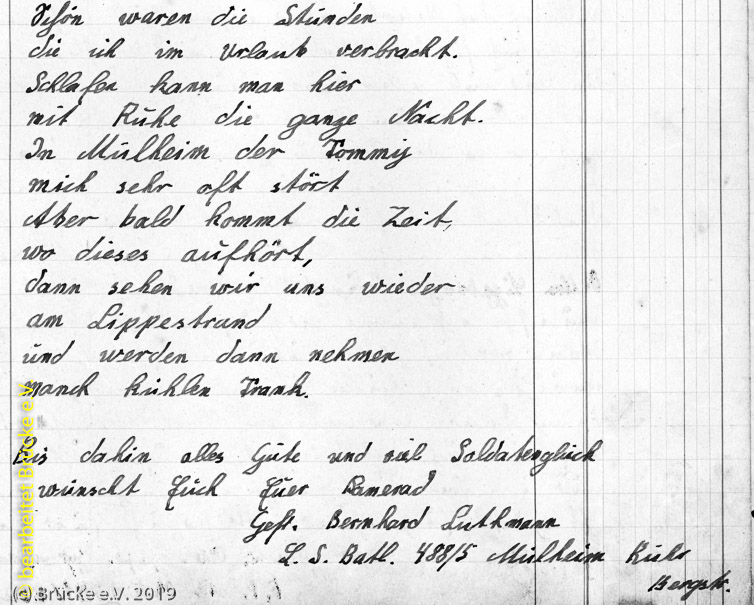 Schön waren die Stunden
die ich im Urlaub verbracht.
Schlafen kann man hier
mit Ruhe die ganze Nacht.
In Mülheim der Tommy
mich sehr oft stört
Aber bald kommt die Zeit,
wo dieses aufhört,
dann sehen wir uns wieder
am Lippestrand
und werden dann nehmen
manch kühlen Trank.
Bis dahin alles Gute und viel Soldatenglück
wünscht Euch Euer Kamerad
Gefr. Bernhard Luthmann
L. S. Batl. 488/5 Mülheim Ruhr
Bergstr.
bearbeitet Brücke e.V.
(c) Brücke e.V. 2019